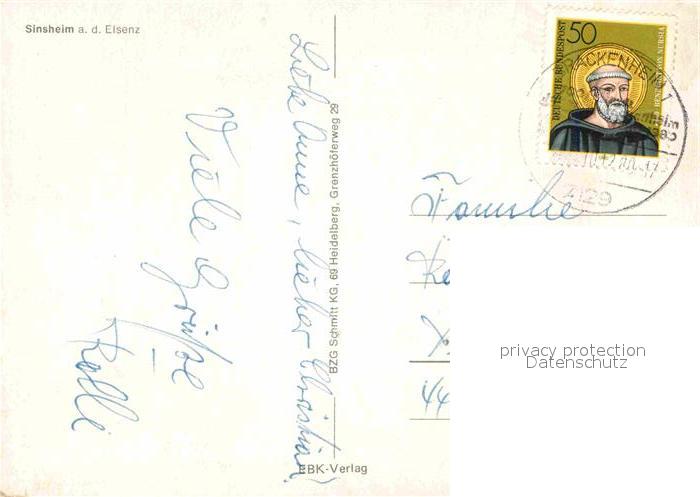 Sinsheim a. d. Elsenz
Liebe Anne, lieber Christian!
Viele Grüße
Rolli
BZG Schmitt KG, 69 Heidelberg, Grenzhöferweg 29
EBK-Verlag
DEUTSCHE BUNDESPOST
50
BENEDIKT VON NURSIA
BRACKENHEIM 1
Familie
44
privacy protection
Datenschutz